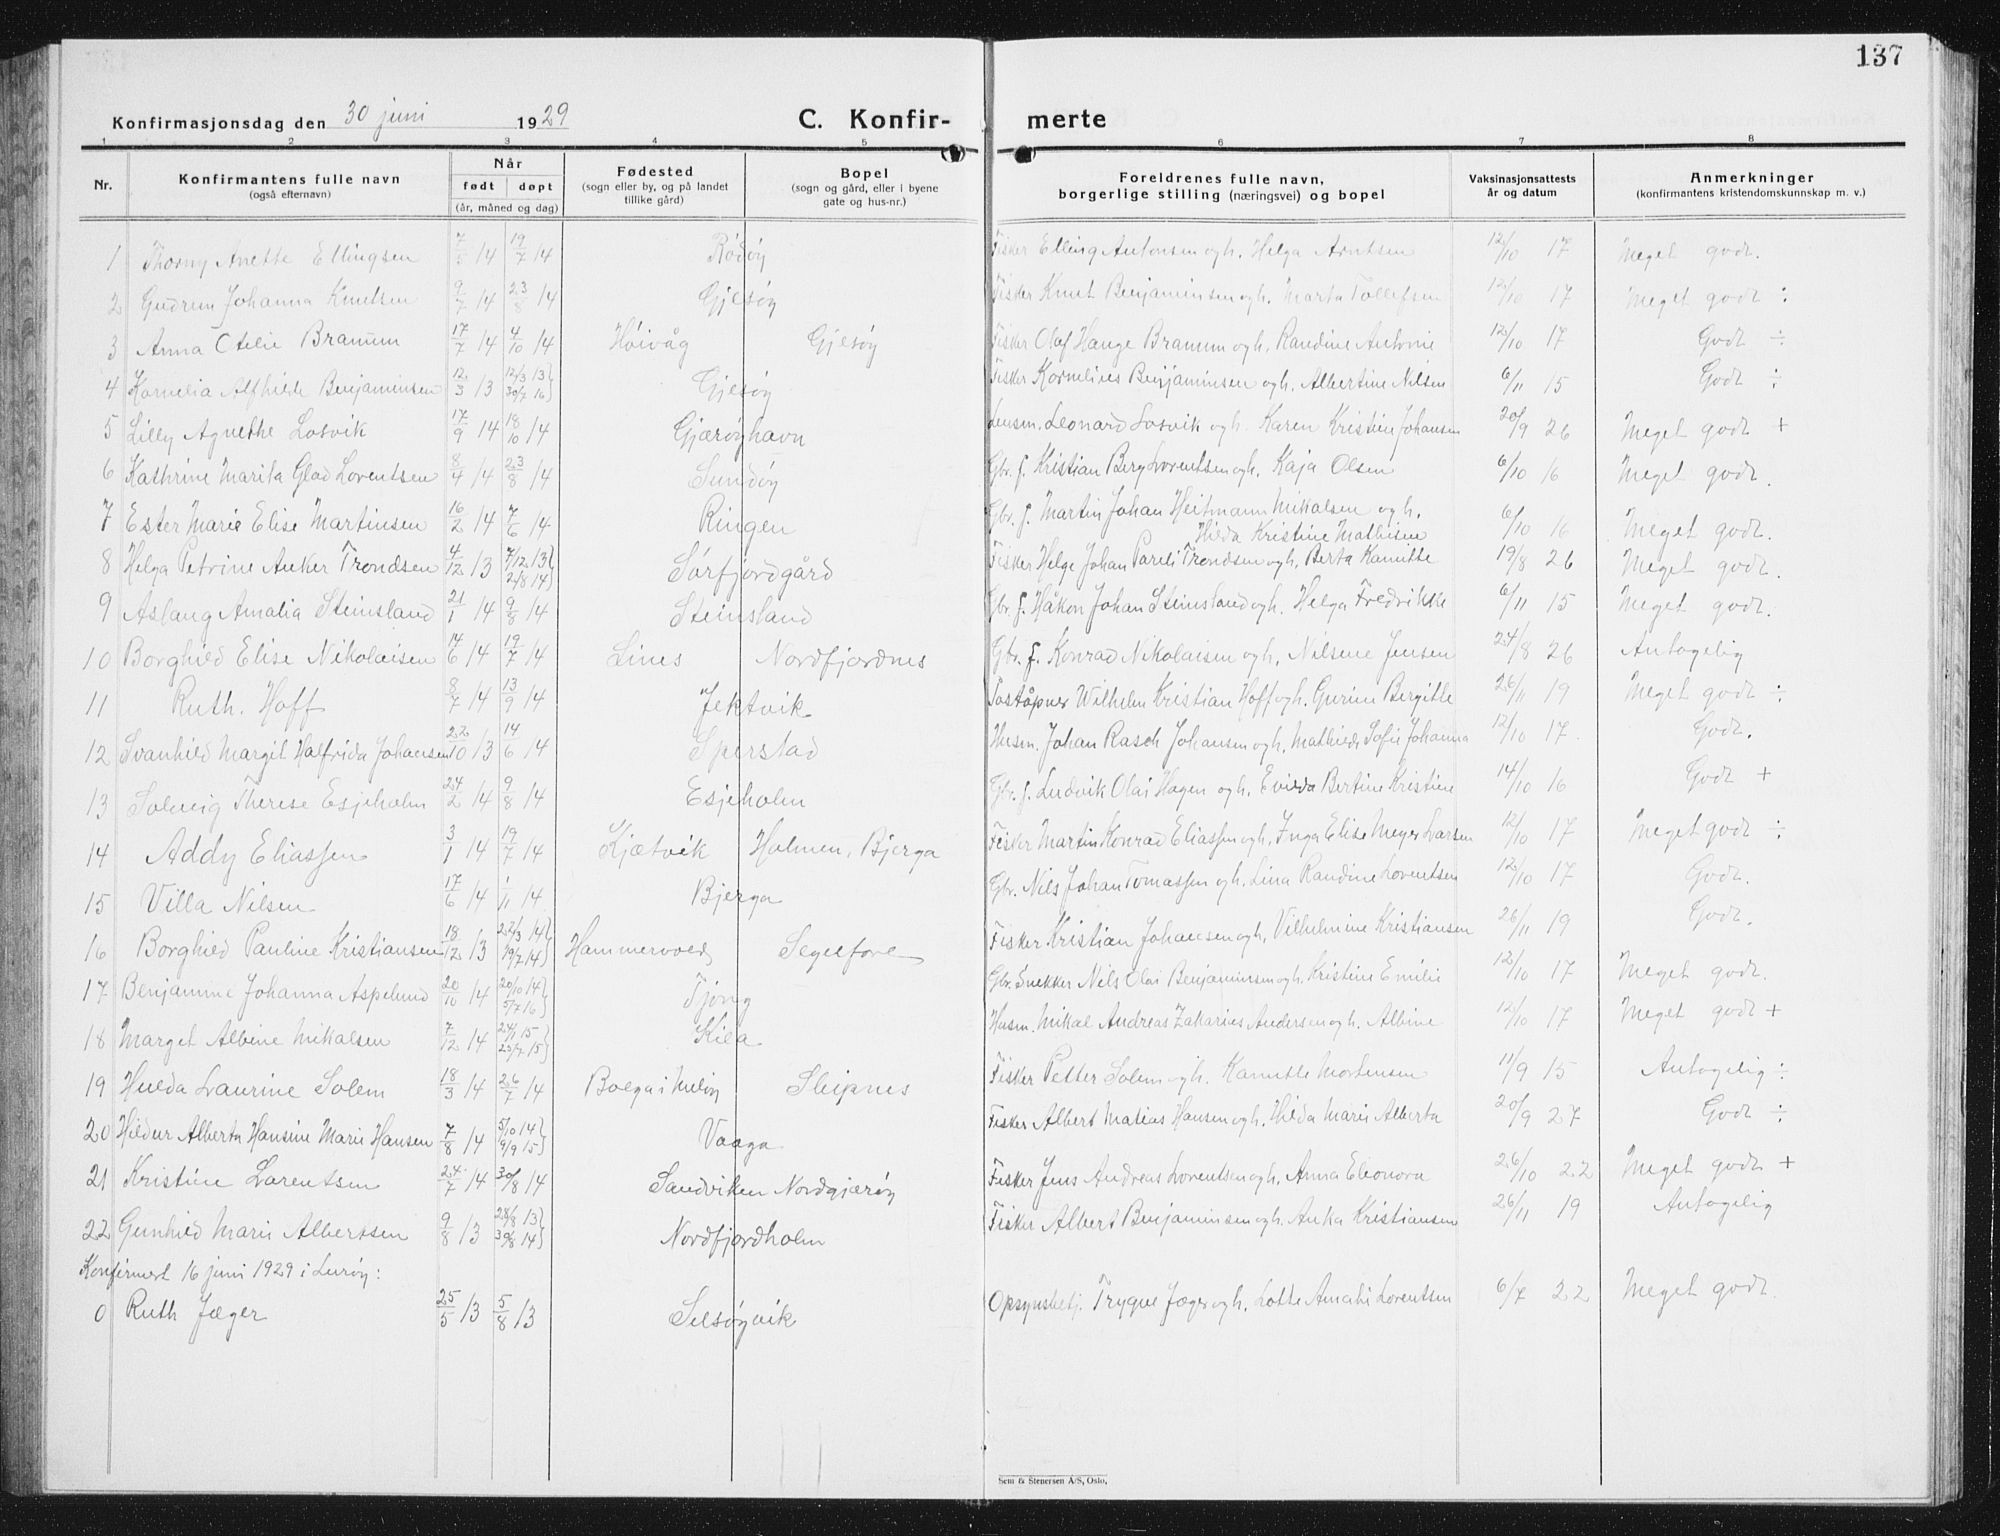 137
Konfirmasjonsdag den 30 juni 1929 C. Konfir- merte
1 2 3 4 5 6 7 8
Nr. Konfirmantens fulle navn (også efternavn) Når født døpt (år, måned og dag) Fødested (sogn eller by, og på landet tillike gård) Bopel (sogn og gård, eller i byene gate og hus-nr.) Foreldrenes fulle navn, borgerlige stilling (næringsvei) og bopel Vaksinasjonsattests år og datum Anmerkninger (konfirmantens kristendomskunnskap m. v.)
1 Thorny Anette Ellingsen 7/5 14 19/7 14 Rödöy Fisker Elling Antonsen og h. Helga Arntsen 12/10 17 Meget godt.
2 Gudrun Johanna Knutsen 9/7 14 23/8 14 Gjesöy Fisker Knut Benjaminsen og h. Marta Tollefsen 12/10 17 Meget godt ÷
3 Anna Otelie Bramm 17/7 14 4/10 14 Höivåg Gjesöy Fisker Olaf Hauge Bramm og h. Randine Antonie 12/10 17 Godt ÷
4 Kornelia Alfhilde Benjaminsen 12/3 13 12/3 13 30/7 16 Gjesöy Fisker Kornelius Benjaminsen og h. Albertine Nilsen 6/11 15 Godt ÷
5 Lilly Agnethe Losvik 17/9 14 18/10 14 Gjæröyhavn Lensm. Leonard Losvik og h. Karen Kristine Johansen 20/9 26 Meget godt +
6 Kathrine Marita Glad Lorentsen 8/4 14 23/8 14 Sundöy Gbr. f. Kristian Berg Lorentsen og h. Kaja Olsen 6/10 16 Meget godt.
7 Ester Marie Elise Martinsen 16/2 14 7/6 14 Ringen Gbr. f. Martin Johan Heitmann Mikalsen og h. Hilda Kristine Mathisen 6/10 16 Meget godt.
8 Helga Petrine Anker Trondsen 4/12 13 7/12 13 2/8 14 Sörfjordgård Fisker Helge Johan Pareli Trondsen og h. Berta Kamitte 19/8 26 Meget godt.
9 Aslaug Amalia Steinsland 21/1 14 9/8 14 Steinsland Gbr. f. Håkon Johan Steinsland og h. Helga Fredrikke 6/11 15 Meget godt.
10 Borghild Elise Nikolaisen 14/6 14 19/7 14 Lines Nordfjordnes Gbr. f. Konrad Nikolaisen og h. Nilsine Jensen 24/8 26 Antagelig
11 Ruth. Hoff 8/7 14 13/9 14 Jektvik Poståpner Wilhelm Kristian Hoff og h. Gurine Bergitte 26/11 19 Meget godt ÷
12 Svanhild Margit Halfrida Johansen 22/10 13 14/6 14 Sperstad Husm. Johan Rasch Johansen og h. Mathilde Sofie Johanna 12/10 17. Godt.
13 Solveig Therese Esjeholm 24/2 14 9/8 14 Esjeholm Gbr. f. Ludvik Olai Hagen og h. Evilda Bertine Kristine 14/10 16 Godt +
14 Addy Eliassen 3/1 14 19/7 14 Kjætvik Holmen, Bjerga Fisker Martin Konrad Eliassen og h. Inga Elise Meyer Larsen 12/10 17 Meget godt ÷
15 Villa Nilsen 17/6 14 1/11 14 Bjerga Gbr. Nils Johan Tomassen og h. Lina Randine Lorentsen 12/10 17 Godt.
16 Borghild Pauline Kristiansen 18/12 13 22/3 14 19/7 14 Hammervold Segelfore Fisker Kristian Johansen og h. Vilhelmine Kristiansen 26/11 19 Godt.
17 Benjamine Johanna Aspelund 20/10 14 20/10 14 5/7 16 Tjong Gbr. Snekker Nils Olai Benjaminsen og h. Kristine Emilie 12/10 17 Meget godt.
18 Marget Albine Mikalsen 7/12 14 24/1 15 25/7 15 Kila Husm. Mikal Andreas Zakarius Andersen og h. Albine 12/10 17 Meget godt +
19 Hulda Laurine Solem 18/3 14 26/7 14 Bolga i Melöy Sleipnes Fisker Petter Solem og h. Kamitte Mortensen 11/9 15 Antagelig ÷
20 Hildur Alberta Hansine Marie Hansen 7/8 14 5/10 14 9/9 15 Vaaga Fisker Albert Matias Hansen og h. Hilda Marie Alberta 20/9 27 Godt ÷
21 Kristine Larentsen 24/7 14 30/8 14 Sandviken Nordgjæröy Fisker Jens Andreas Lorentsen og h. Anna Eleonora 26/10 22 Meget godt +
22 Gunhild Marie Albertsen 9/8 13 28/8 13 30/8 14 Nordfjordholm Fisker Albert Benjaminsen og h. Anka Kristiansen 26/11 19 Antagelig
Konfirmert 16 juni 1929 i Luröy:
0 Ruth Jæger 25/5 13 5/8 13 Selsöyvik Opsynsbetj. Trygve Jæger og h. Lotte Amalie Lorentsen 6/7 22 Meget godt.
Sem & Stenersen A/S, Oslo.